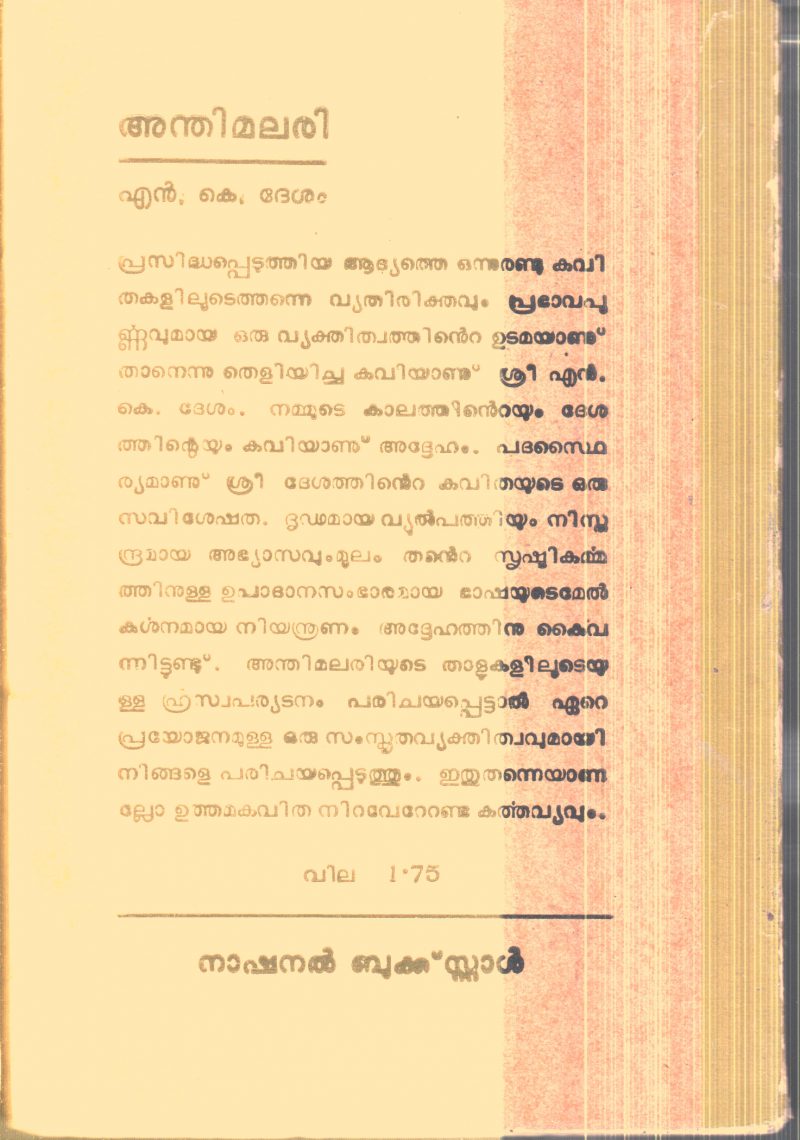 അന്തിമലരി
എൻ. കെ. ദേശം
പ്രസിദ്ധപ്പെടുത്തിയ ആദ്യത്തെ ഒന്നുരണ്ടു കവി
തകളിലൂടെത്തന്നെ വ്യതിരിക്തവും പ്രഭാവപൂ
ർണ്ണവുമായ ഒരു വ്യക്തിത്വത്തിൻെറ ഉടമയാണു്
താനെന്നു തെളിയിച്ച കവിയാണു് ശ്രീ എൻ.
കെ. ദേശം. നമ്മുടെ കാലത്തിൻെറയും ദേശ
ത്തിന്റെയും കവിയാണു് അദ്ദേഹം. പദസ്ഥൈ
ര്യമാണു് ശ്രീ ദേശത്തിൻെറ കവിതയുടെ ഒരു
സവിശേഷത. ദൃഢമായ വ്യുൽപത്തിയും നിസ്ത
ന്ദ്രമായ അഭ്യാസവുംമൂലം തൻെറ സൃഷ്ടികർമ്മ
ത്തിനുള്ള ഉപാദാനസംഭാരമായ ഭാഷയുടെമേൽ
കർശനമായ നിയന്ത്രണം അദ്ദേഹത്തിനു കൈവ
ന്നിട്ടുണ്ടു്. അന്തിമലരിയുടെ താളുകളിലൂടെയു
ള്ള ഹ്രസ്വപര്യടനം പരിചയപ്പെട്ടാൽ ഏറെ
പ്രയോജനമുള്ള ഒരു സംസ്കൃതവ്യക്തിത്വവുമായി
നിങ്ങളെ പരിചയപ്പെടുത്തും. ഇതുതന്നെയാണ
ല്ലോ ഉത്തമകവിത നിറവേറേറണ്ട കർത്തവ്യവും.
വില 1·75
നാഷനൽ ബുക്ക്‌സ്റ്റാൾ